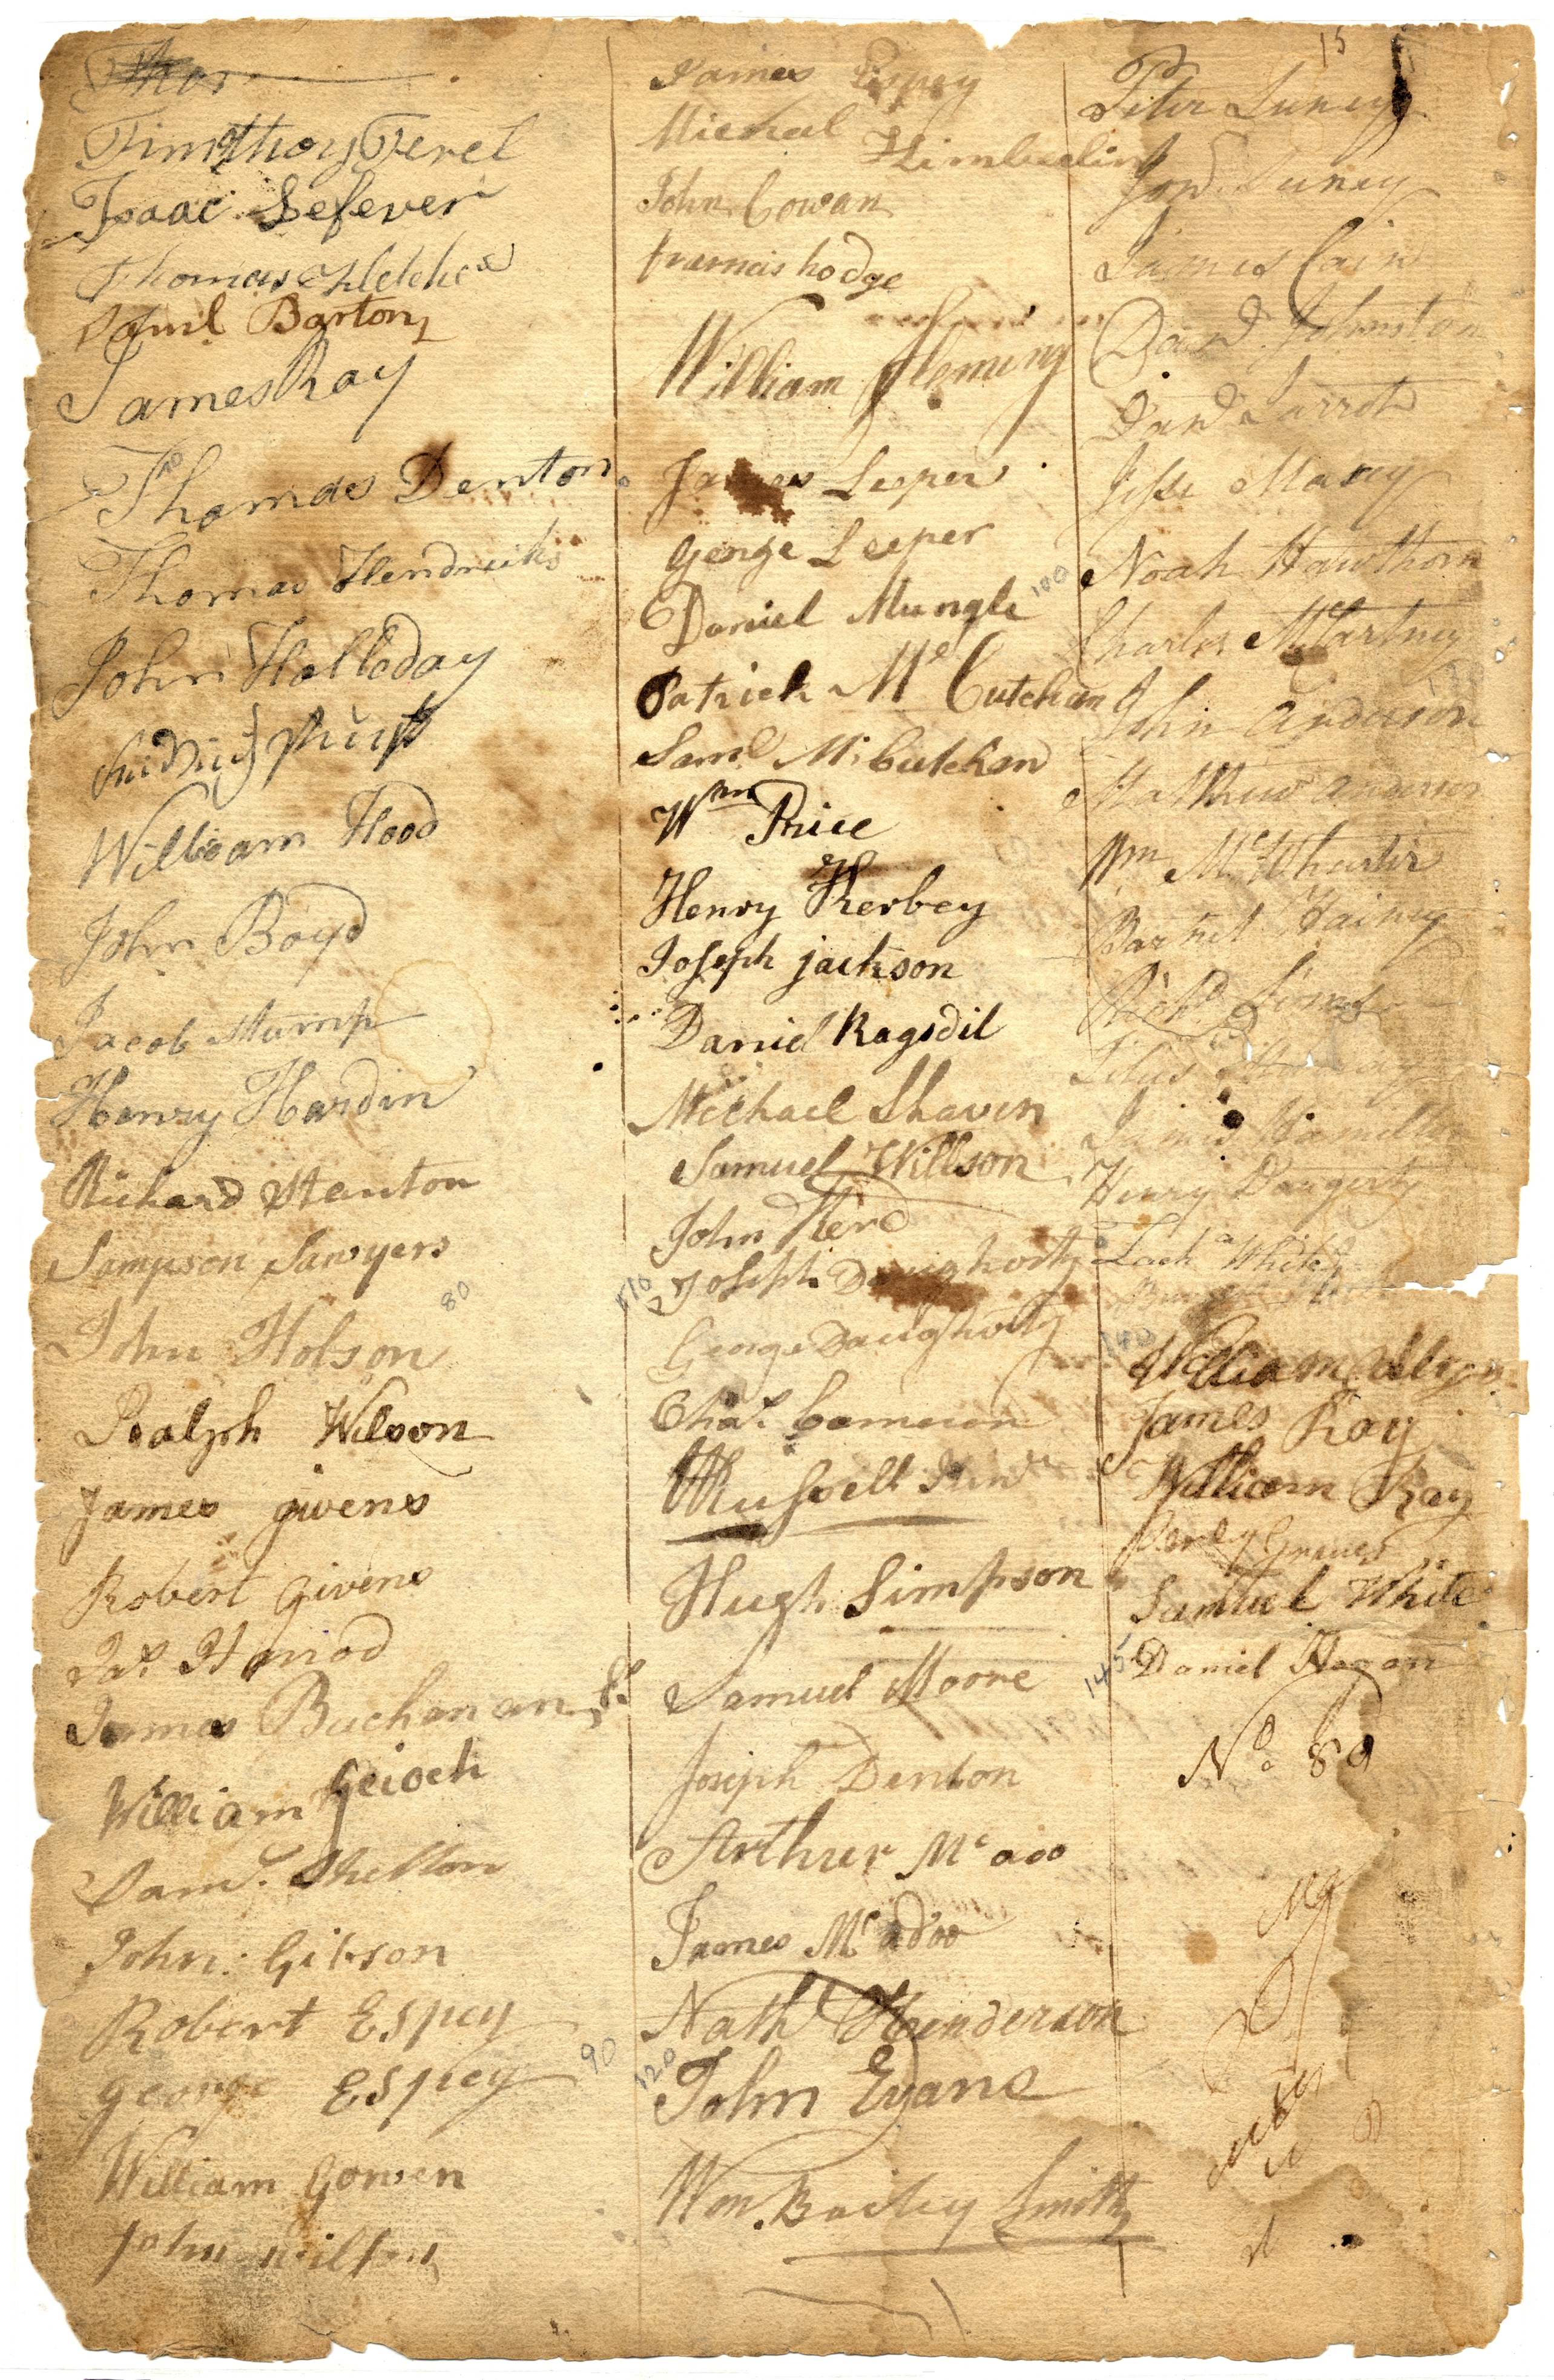 Thos
Timothy Terel
Isaac Lefever
Thomas Fletcher
Saml Barton
James Ray
Thomas Denton
Thomas Hendricks
John Holladay
William Hood
John Boyd
Jacob Stump
Henry Hardin
Richard Stanton
Sampson Sawyers
80
John Hobson
Ralph Wilson
James givens
Robert Givens
Jas. Harrod
James Buchanan Sr
William Geioch
Saml. Shelton
John Gibson
Robert Espey
George Espey
90
William Gowen
John Wilfong
James Espey
Micheal Kimberlin
John Cowan
francis hodge
William Fleming
James Leeper
George Leeper
Daniel Mungle
100
Patrick Mc Cutchan
Saml McCutchan
Wm Price
Henry Kerbey
Joseph jackson
Daniel Ragsdil
Michael Shaven
Samuel Willson
John Kerd
110
Joseph Daughorty
George Daughorty
Chas. Cameron
WRussell Junr
Hugh Simpson
Samuel Moore
Joseph Denton
Arthur Mc adoo
James Mc adoo
Nath Henderson
120
John Evans
Wm. Bailey Smith
15
Peter Luney
Jon. Luney
James Cain
Danl. Johnston
Danl. Jarrot
Jesse Maxey
Noah Hawthorn
Charles McCartney
130
John Anderson
Matthew Anderson
Wm McWhirter
Barnet Hainey
Richd Sims
Titus Murray
James Hamilton
Henry Daugerty
Zach White
140
William Calloway
James Ray
William Ray
Perley Grimes
Samuel White
145
Daniel Hogan
No. 80